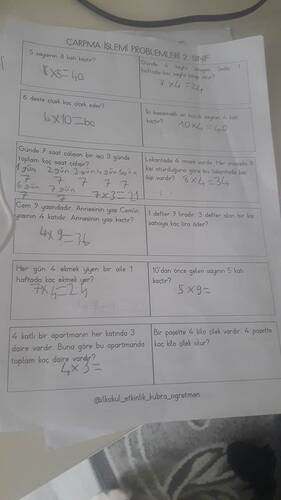 ÇARPMA İŞLEMİ PROBLEMLERİ 2. SINIF
5 sayısının 8 katı kaçtır?
8x5=40
Günde 4 sayfa okuyan Seda 1
haftada kaç sayfa kitap okur?
7x4=24
6 deste çiçek kaç çiçek eder?
6x10=60
İki basamaklı en küçük sayının 4 katı
kaçtır?
10x4=40
Günde 7 saat çalışan bir işçi 3 günde
toplam kaç saat çalışır?
1 gün 2 gün 3 gün 4 gün 5 gün
7 7 7 7 7
6 gün 7 gün
7 7 7x3=21
Lokantada 8 masa vardır. Her masada 4
kişi oturduğuna göre bu lokantada kaç
kişi vardır?
8x4=34
Cem 9 yaşındadır. Annesinin yaşı Cem'in
yaşının 4 katıdır. Annesinin yaşı kaçtır?
4x9=36
1 defter 7 liradır. 3 defter alan bir kişi
satıcıya kaç lira öder?
Her gün 4 ekmek yiyen bir aile 1
haftada kaç ekmek yer?
7x4=24
10'dan önce gelen sayının 5 katı
kaçtır?
5x9=
4 katlı bir apartmanın her katında 3
daire vardır. Buna göre bu apartmanda
toplam kaç daire vardır?
4x3=
Bir poşette 4 kilo elma vardır. 4 poşette
kaç kilo elma olur?
@ilkokul_etkinlik_kubra_ogretmen